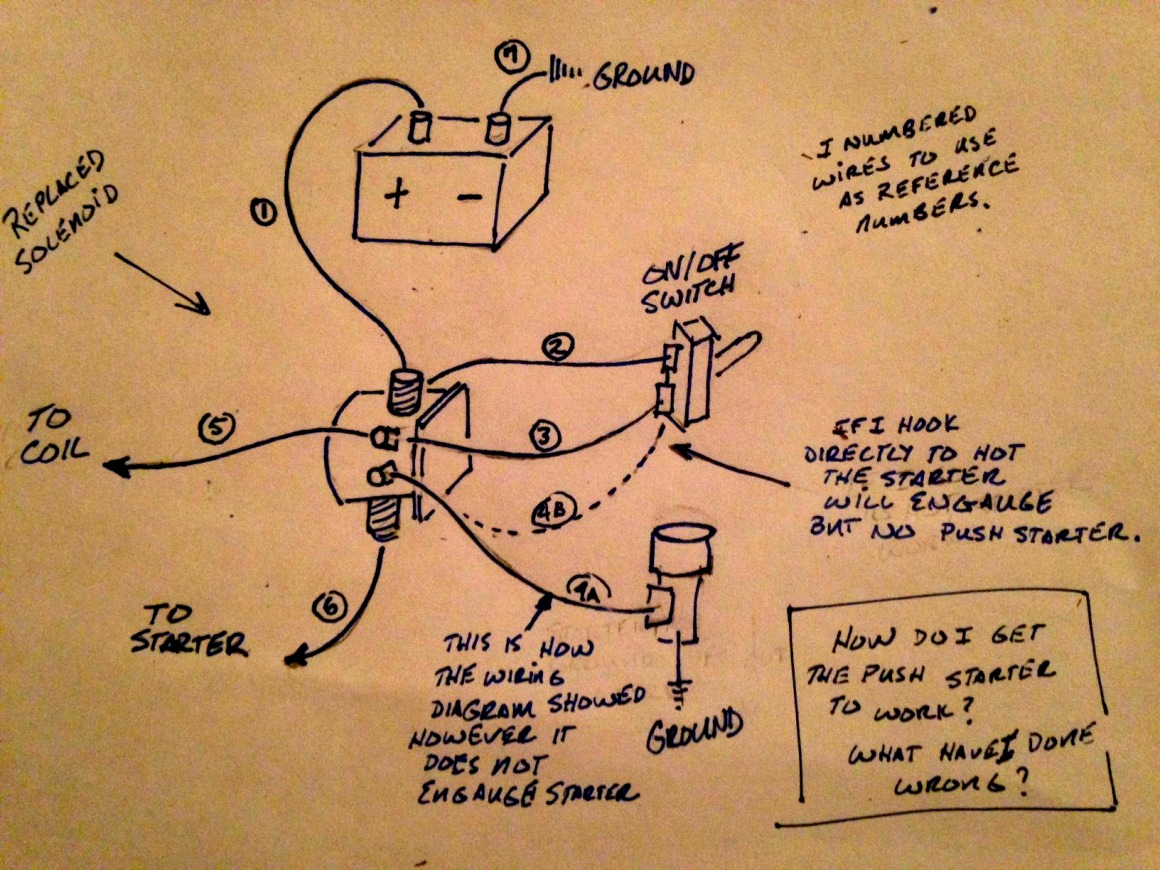 7
GROUND
I NUMBERED
WIRES TO USE
AS REFERENCE
NUMBERS.
REPLACED
SOLENOID
1
+ -
ON/OFF
SWITCH
2
TO
COIL
5
3
IF I HOOK
DIRECTLY TO HOT
THE STARTER
WILL ENGAUGE
BUT NO PUSH STARTER.
4B
4A
TO
STARTER
6
THIS IS HOW
THE WIRING
DIAGRAM SHOWED
HOWEVER IT
DOES NOT
ENGAUGE STARTER
GROUND
HOW DO I GET
THE PUSH STARTER
TO WORK?
WHAT HAVE I DONE
WRONG?